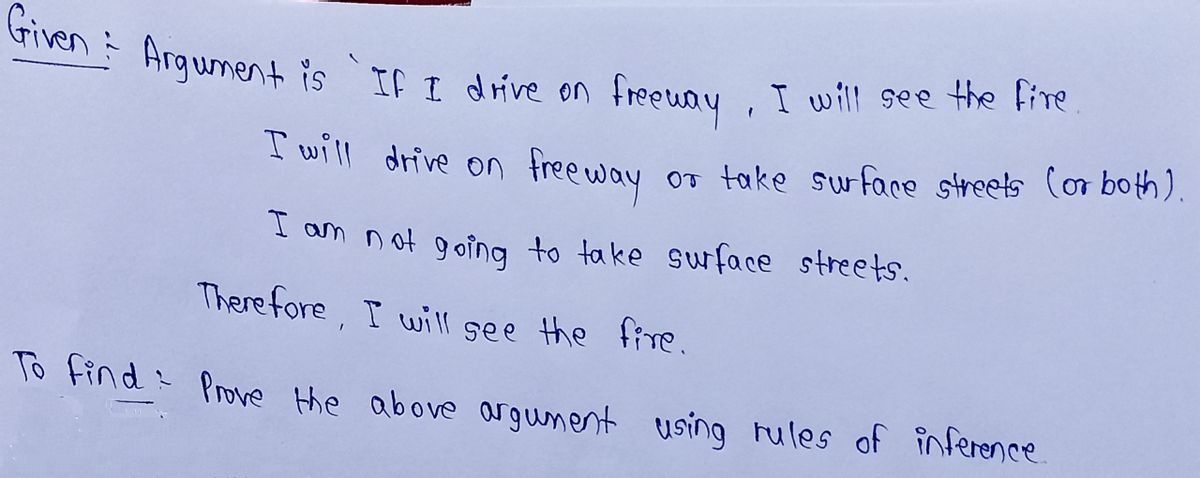 Given :- Argument is `If I drive on freeway, I will see the fire.
I will drive on freeway or take surface streets (or both).
I am not going to take surface streets.
Therefore, I will see the fire.
To find :- Prove the above argument using rules of inference.